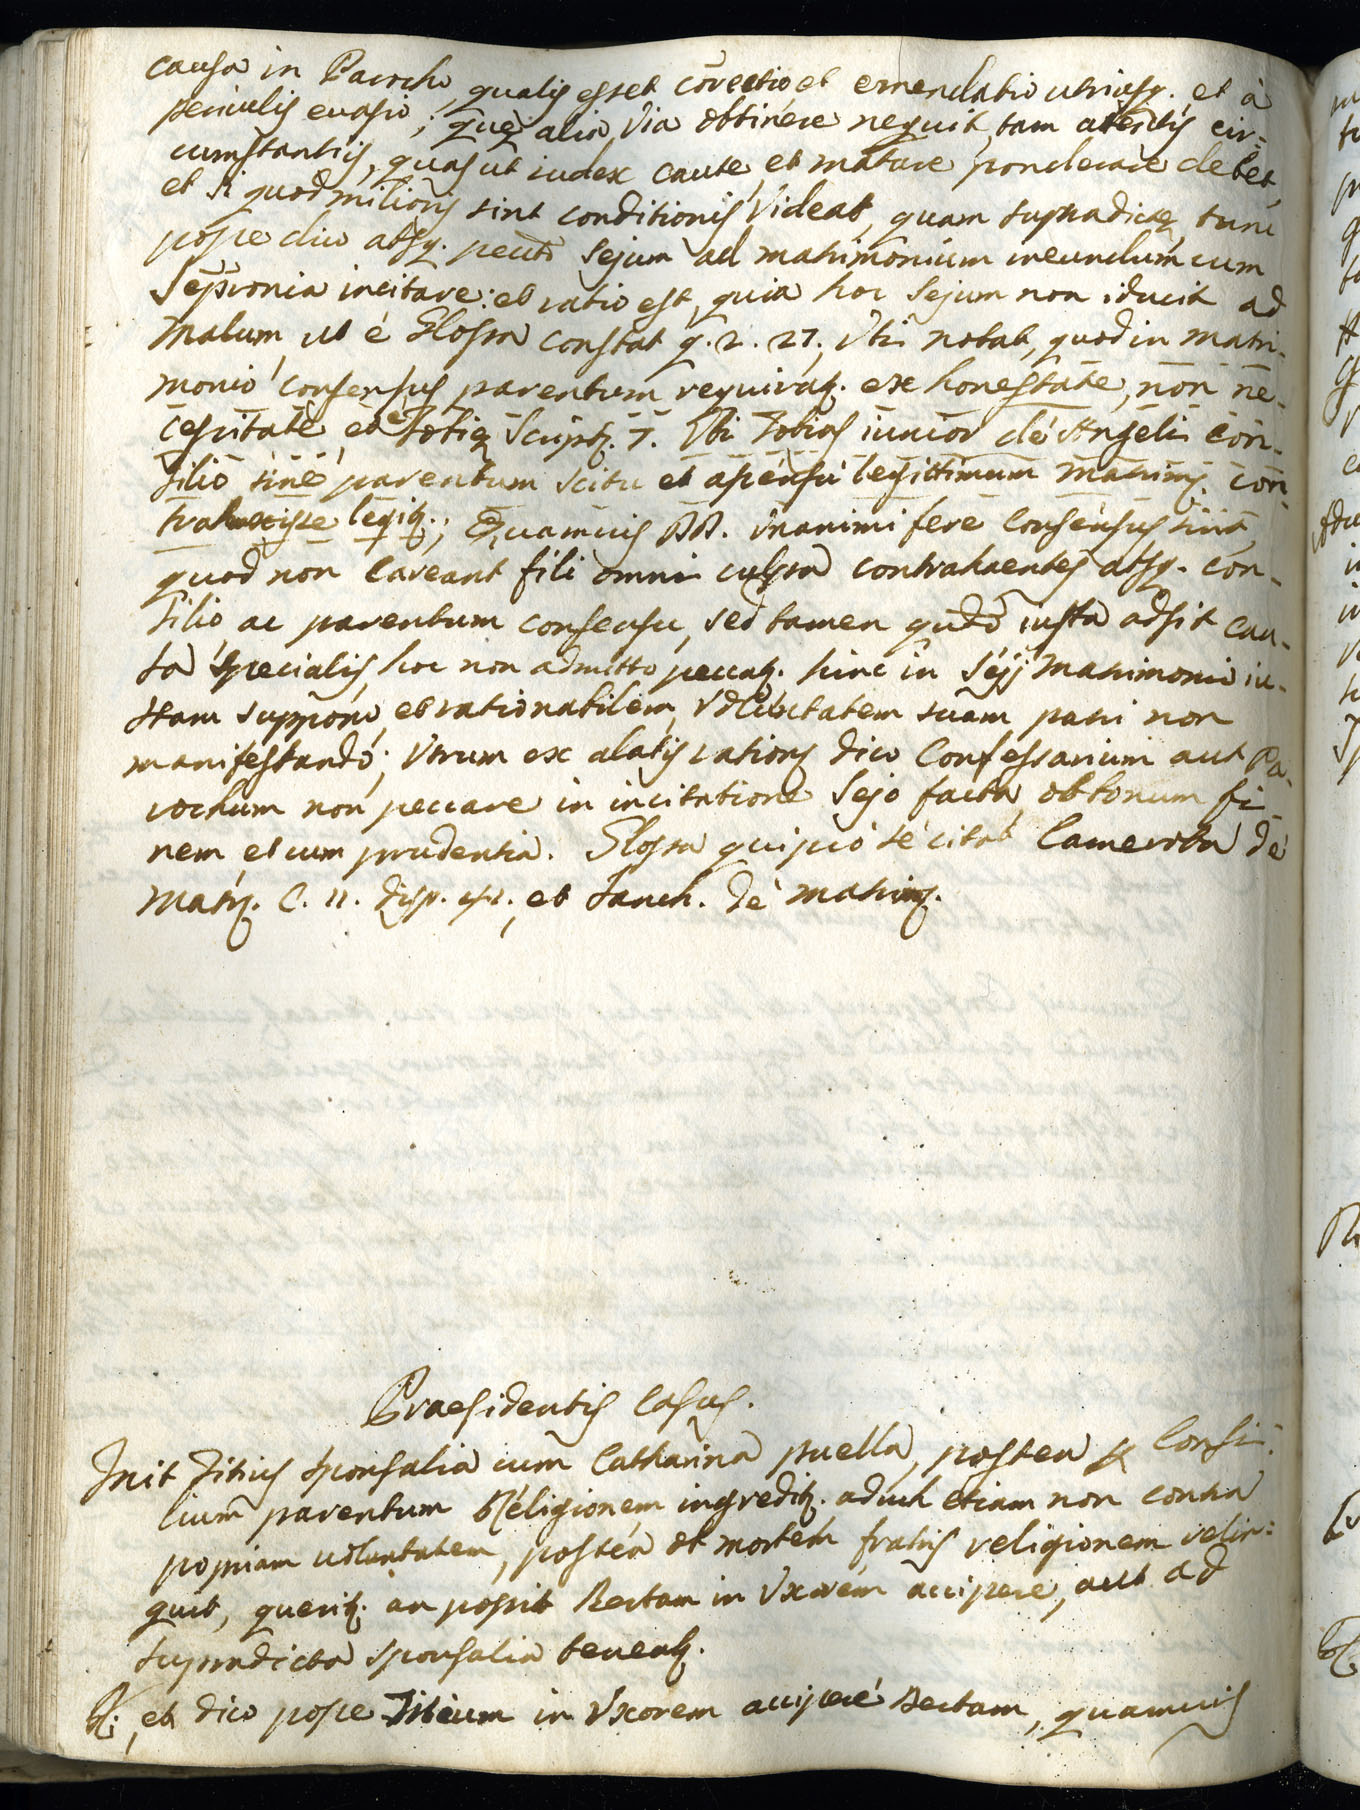 causa in Parocho, qualis esset corectio et emendatio utriusq. et à
periculis evasio; quæ alia via obtinere nequit, tam attentis cir=
cumstantijs, quas ut iudex caute, et mature ponderare debet,
et si quod milioris sint conditionis videat, quam supradictæ, tunc
posse dico absq. pecto Sejum ad matrimonium ineundum cum
Sepronia incitare: et ratio est, quia hoc Sejum non iducit ad
malum, ut é Glossa constat q. 2. 27., Vbi notat, quod in matri-
monio consensus parentum requiratq. ex honestate, non ne-
cessitate, et Tobiæ Scriptq. 7. Vbi Tobias iunior de Angeli con-
silio sine parentum scitu et assensu legittimum matrimq. con
trahxisse legitq.; Quamuis DD. vnanimi fere consensus sint
quod non careant fili omni culpa contrahaentes absq. con-
silio, ac parentum consensu, sed tamen qudo iusta adsit cau-
sa specialis, hoc non admitto peccatq. hinc in Sejj matrimonio iu-
stam suppono, et rationabilem, voluntatem suam patri non
manifestando; Vtrum ex alatis rations dico Confessarium aut Pa-
rochum non peccare in incitatione Sejo facta ob bonum fi
nem et cum prudentia. Glossa qui pciò se citat Camerota de
Matrq. C. 11. disp. et Sanch. de matrimq.
Praesidentis Casus.
Init Titius sponsalia cum Catharina puella, postea Consi=
lium parentum Religionem ingreditq. aduch etiam non contra
popriam voluntatem, postea ob mortem fratris religionem relin=
quit, queritq. an possit Bertam in Vxorem accipere, aut ad
supradicta sponsalia teneatq.
R. et dico posse Titium in Vxorem accipere Bertam, quamuis